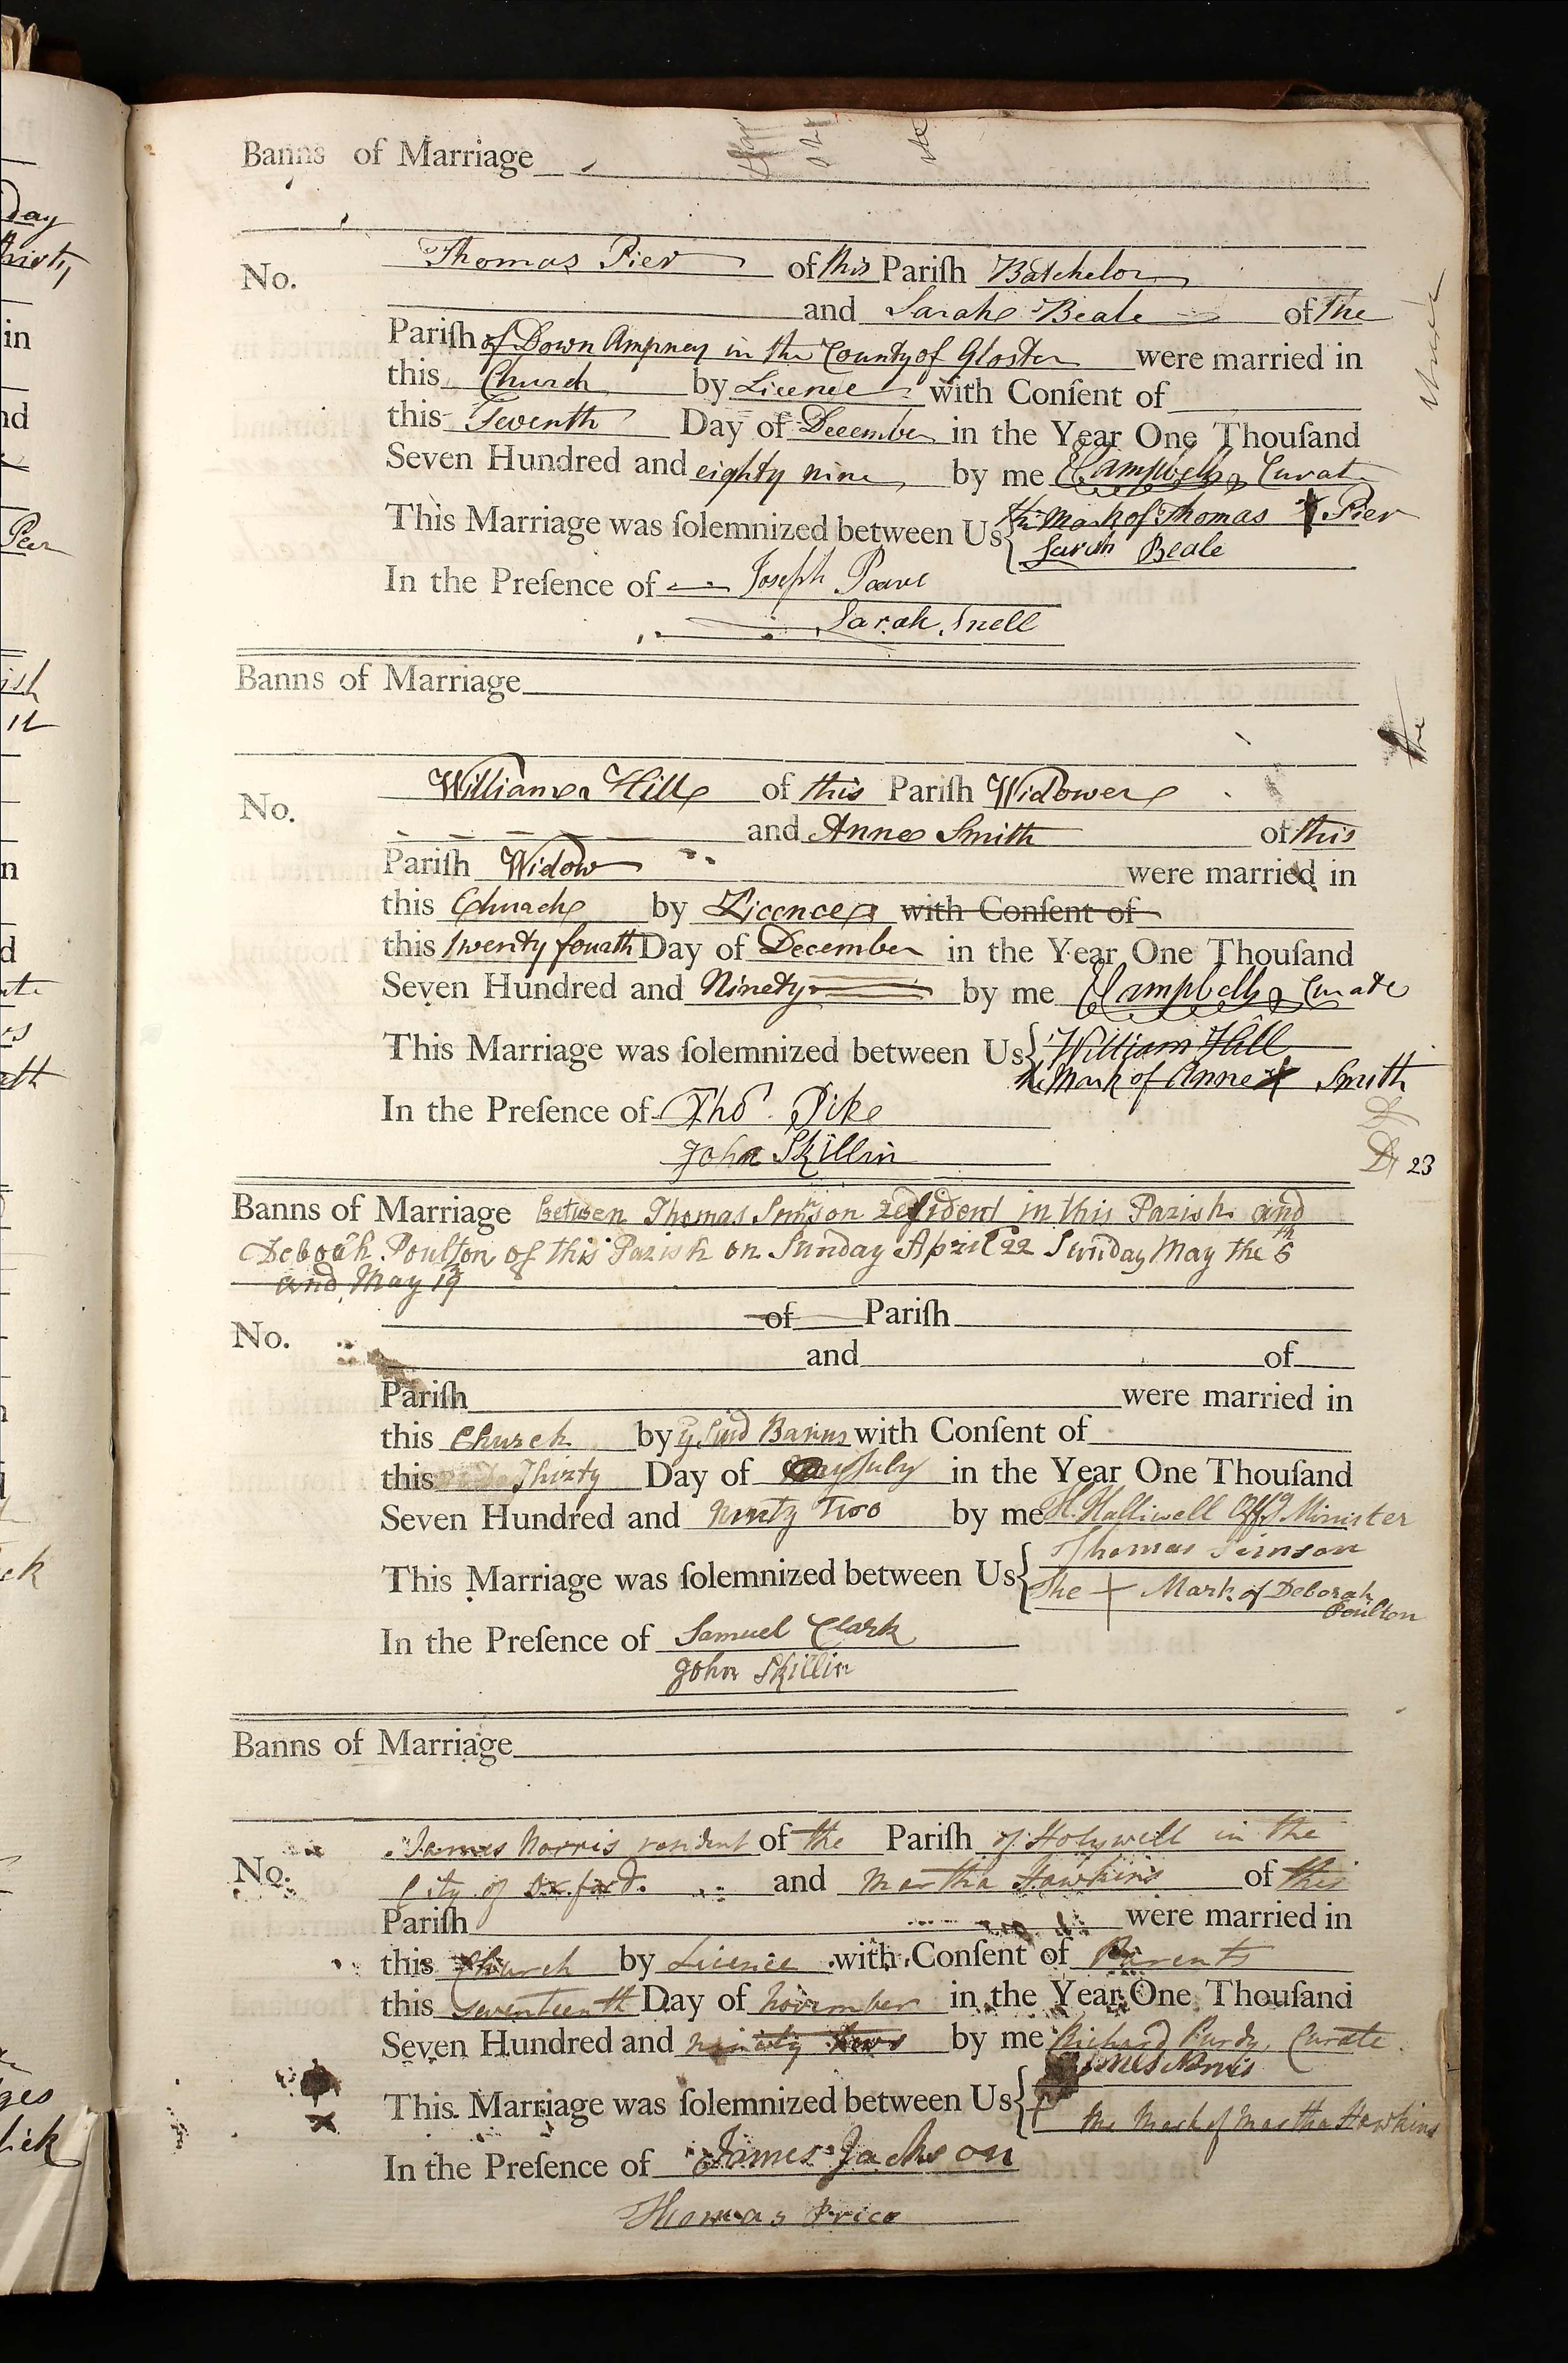 Banns of Marriage
No. Thomas Pier of this Pariſh Batchelor
and Sarah Beale of the
Pariſh of Down Ampney in the County of Gloster were married in
this Church by Licence with Conſent of
this Seventh Day of December in the Year One Thouſand
Seven Hundred and eighty nine by me Campbell Curate
This Marriage was ſolemnized between Us the Mark of Thomas X Pier
Sarah Beale
In the Preſence of Joseph
Sarah Snell
Banns of Marriage
the
No. William Hill of this Pariſh Widower
and Anne Smith of this
Pariſh Widow were married in
this Church by Licence with Conſent of
this twenty fourth Day of December in the Year One Thouſand
Seven Hundred and Ninety by me Campbell Curate
This Marriage was ſolemnized between Us William Hill
the Mark of Anne X Smith
In the Preſence of Thos. Pike
John Skillin
23
Banns of Marriage between Thomas Simson reſident in this Parish and
Deborah Poulton of this Parish on Sunday April 22 Sunday May the 6th
and May 13
No. of Pariſh
and of
Pariſh were married in
this Church by ye Said Banns with Conſent of
this Thirty Day of July in the Year One Thouſand
Seven Hundred and Ninety Two by me H. Halliwell Offg Minister
This Marriage was ſolemnized between Us Thomas Simson
The + Mark of Deborah
Poulton
In the Preſence of Samuel Clark
John Skillin
Banns of Marriage
No. James Norris resident of the Pariſh of Holywell in the
City of Oxford. and Martha Hawkins of this
Pariſh were married in
this Church by Licence with Conſent of Parents
this seventeenth Day of November in the Year One Thouſand
Seven Hundred and ninety two by me Richard Purdy, Curate
This Marriage was ſolemnized between Us James Norris
the Mark of Martha Hawkins
In the Preſence of James Jackson
Thomas Price